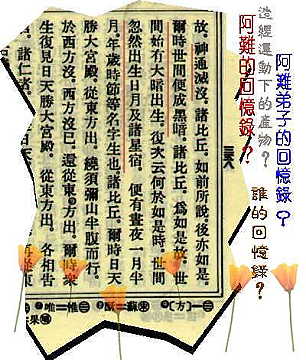 阿難弟子的回憶錄？
造經運動下的產物？
誰的回憶錄？
阿難的回憶錄？
故。神通滅沒。諸比丘。如前所說。後亦如是。
爾時世間便成黑暗。諸比丘。為如是故。世
間始有大暗出生。復次云何於如是時。世間
忽然出生日月及諸星宿。便有晝夜一月半
月。年歲時節等名字生也。諸比丘。爾時日天
勝大宮殿。從東方出。繞須彌山半腹而行。
於西方沒。西方沒已。還從東方出。爾時衆
生復見日天勝大宮殿。從東方出。各相告
諸仁者。
唯＝惟 〔方〕－